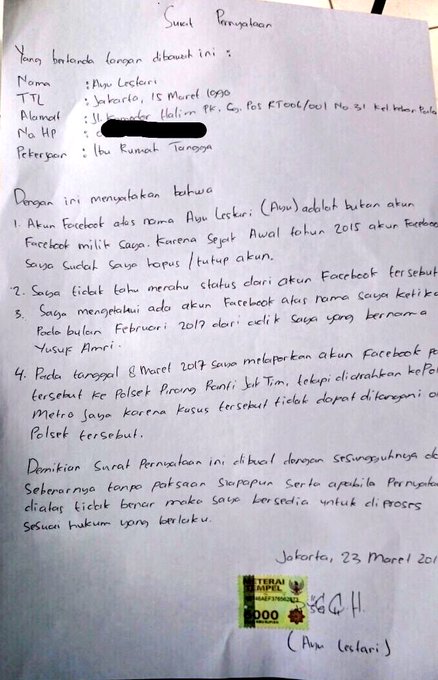 Surat Pernyataan
Yang bertanda tangan dibawah ini :
Nama : Ayu Lestari
TTL : Jakarta, 15 Maret 1990
Alamat : Jl. Halim PK. Gg. Pos RT006/001 No 31 Kel
No HP :
Pekerjaan : Ibu Rumah Tangga
Dengan ini menyatakan bahwa
1. Akun Facebook atas nama Ayu Lestari (Ayu) adalah bukan akun
Facebook milik saya. Karena Sejak Awal tahun 2015 akun Facebook
Saya sudah saya hapus / tutup akun.
2. Saya tidak tahu menahu status dari akun Facebook tersebut
3. Saya mengetahui ada akun Facebook atas nama saya ketika
Pada bulan Februari 2017 dari adik saya yang bernama
Yusuf Amri.
4. Pada tanggal 8 Maret 2017 saya melaporkan akun Facebook
tersebut ke Polsek Pinang Ranti Jak Tim, tetapi diarahkan ke
Metro Jaya karena kasus tersebut tidak dapat ditangani
Polsek tersebut.
Demikian Surat Pernyataan ini dibuat dengan sesungguhnya
Sebenarnya tanpa paksaan siapapun serta apabila
diatas tidak benar maka saya bersedia untuk diproses
sesuai hukum yang berlaku.
Jakarta, 23 Maret
METERAI
TEMPEL
6000
(Ayu Lestari)